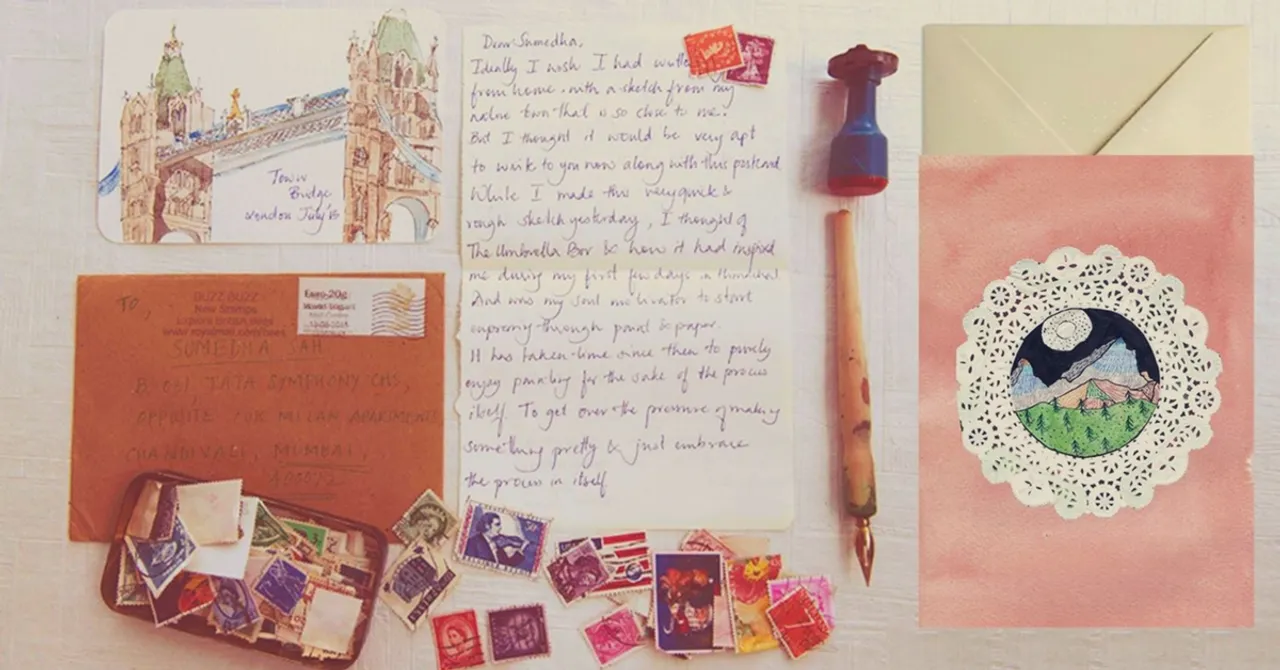 Tower
Bridge
London July'15
Dear Sumedha,
Ideally I wish I had
from home. with a sketch from my
native town that is so close to me.
But I thought it would be very apt
to write to you now along with this postcard
While I made this very quick &
rough sketch yesterday, I thought of
The Umbrella Box & how it had inspired
me during my first few days in
And was my soul motivator to start
expressing through paint & paper.
It has taken time since then to purely
enjoy painting for the sake of the process
itself. To get over the pressure of making
something pretty & just embrace
the process in itself
TO,
BUZZ BUZZ
New Stamps
Euro-20g
SUMEDHA SAH
TATA SYMPHONY CHS,
APARTMENTS
CHANDIVALI, MUMBAI,